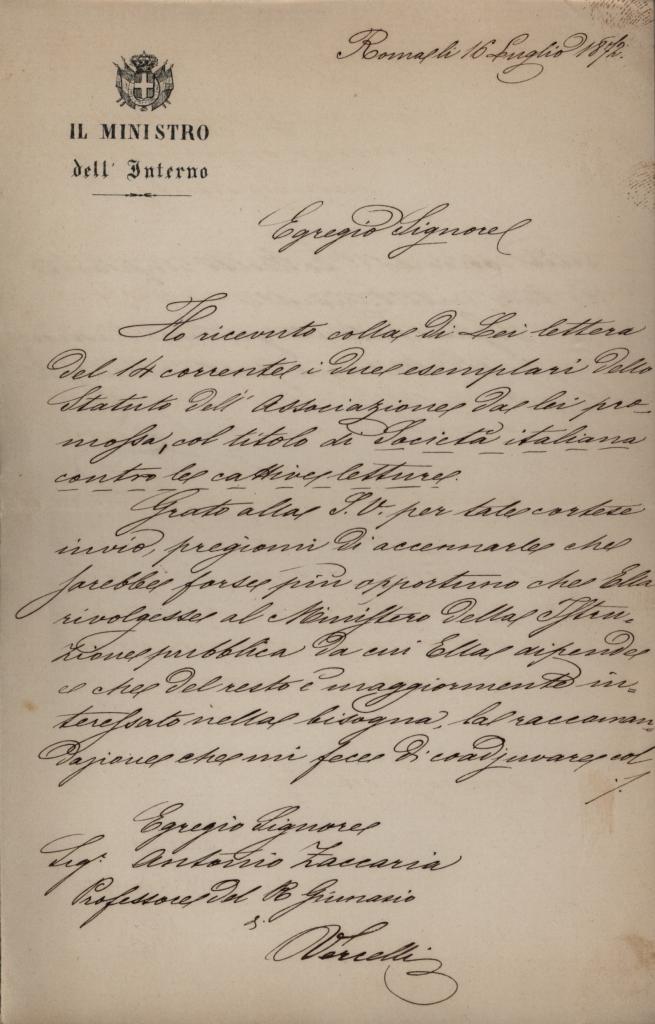 Roma li 16 Luglio 1872.
IL MINISTRO
dell' Interno
Egregio Signore
Ho ricevuto colla di Lei lettera
del 14 corrente i due esemplari dello
Statuto dell' Associazione da lei pro-
mossa, col titolo di Società italiana
contro le cattive letture.
Grato alla S. V. per tale cortese
invio, pregiomi di accennarle che
sarebbe forse più opportuno che Ella
rivolgesse al Ministero della Istru-
zione pubblica da cui Ella dipende
e che del resto è maggiormente in-
teressato nella bisogna, la raccoman-
dazione che mi fece di coadjuvare col
./.
Egregio Signore
Sigr. Antonio Zaccaria
Professore del R Ginnasio
di
Vercelli